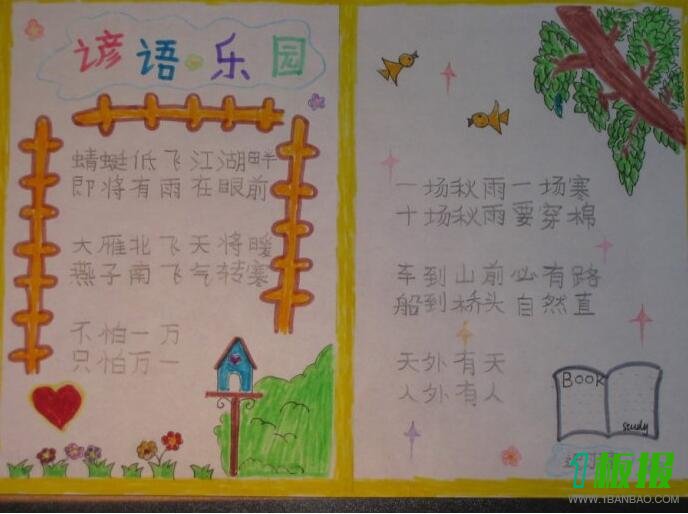 谚语乐园
蜻蜓低飞江湖畔
即将有雨在眼前
大雁北飞天将暖
燕子南飞气转寒
不怕一万
只怕万一
一场秋雨一场寒
十场秋雨要穿棉
车到山前必有路
船到桥头自然直
天外有天
人外有人
Book
study
板报
WWW.1BANBAO.COM